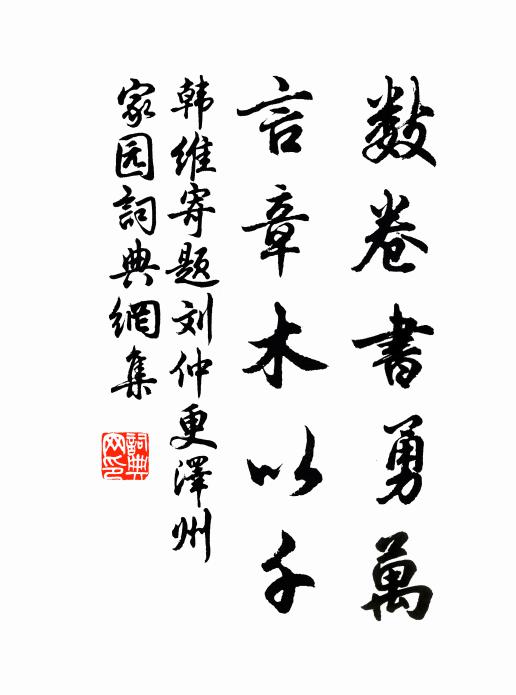 数卷書勇萬
言章木以千
韩維寄题刘仲更澤州
家园詞典網集
詞典
网印